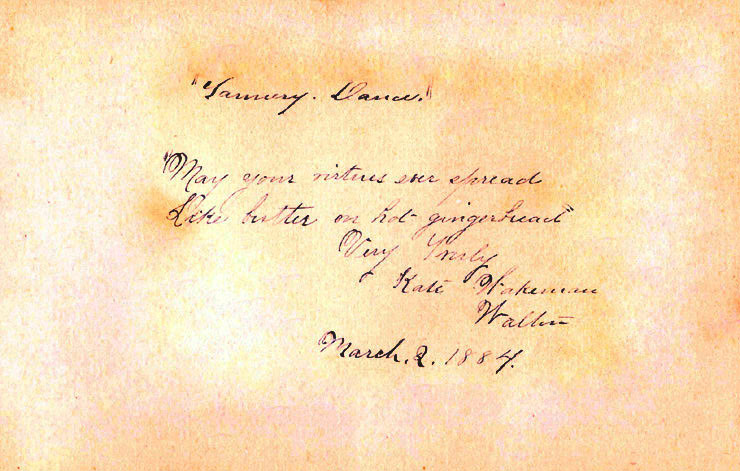 "Tannery. Dance."
"May your virtues ever spread
Like butter on hot gingerbread"
Very Truly
Kate Wakeman
Walton
March. 2. 1884.